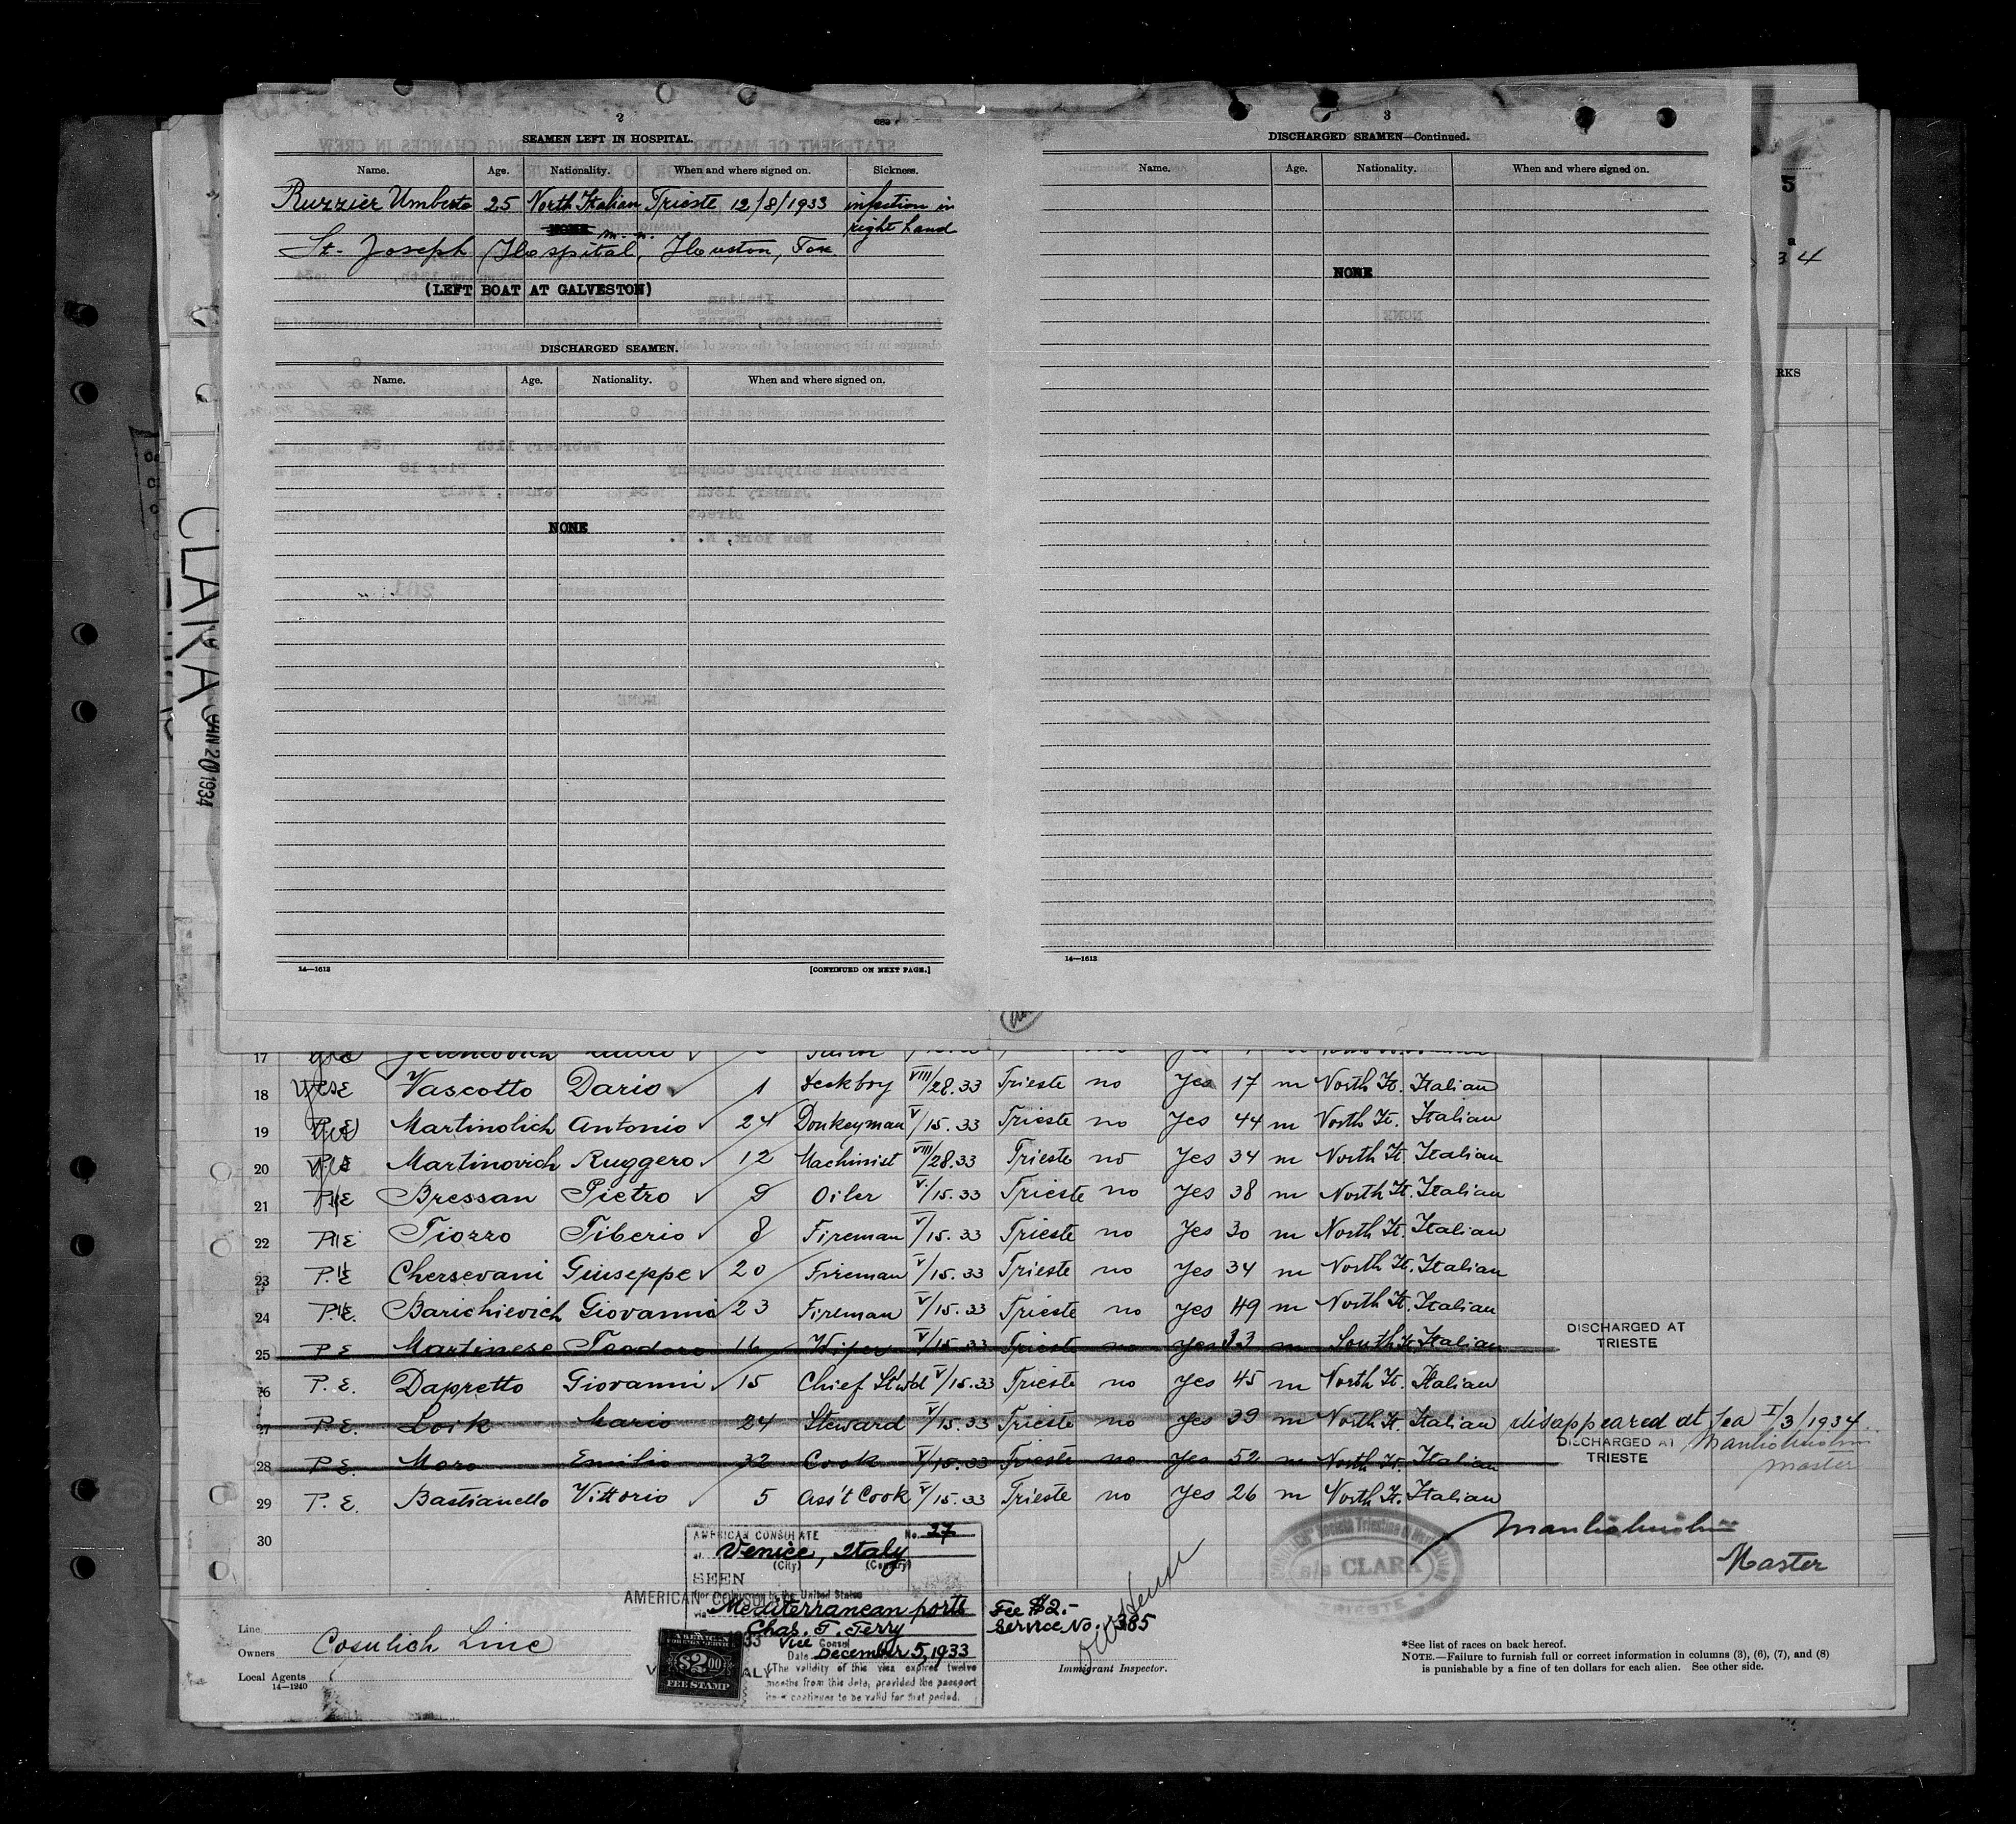 2
SEAMEN LEFT IN HOSPITAL.
Name. Age. Nationality. When and where signed on. Sickness.
Ruzzier Umberto 25 North Italian Trieste 12/8/1933 infection in
right hand
NONE
St. Joseph Hospital, Houston, Tex.
(LEFT BOAT AT GALVESTON)
DISCHARGED SEAMEN.
Name. Age. Nationality. When and where signed on.
NONE
14—1613 [CONTINUED ON NEXT PAGE.]
3
DISCHARGED SEAMEN—Continued.
Name. Age. Nationality. When and where signed on.
NONE
14—1613
5
34
RKS
CLARA
JAN 20 1934
17
18 Vascotto Dario 1 Deckboy VIII/28.33 Trieste no Yes 17 m North It. Italian
19 P.E. Martinolich Antonio 24 Donkeyman V/15.33 Trieste no Yes 44 m North It. Italian
20 Martinovich Ruggero 12 Machinist VIII/28.33 Trieste no Yes 34 m North It. Italian
21 P.E. Bressan Pietro 9 Oiler V/15.33 Trieste no Yes 38 m North It. Italian
22 P.E. Tiozzo Tiberio 8 Fireman V/15.33 Trieste no Yes 30 m North It. Italian
23 P.E. Chersevani Giuseppe 20 Fireman V/15.33 Trieste no Yes 34 m North It. Italian
24 P.E. Barichievich Giovanni 23 Fireman V/15.33 Trieste no Yes 49 m North It. Italian
25 P.E. Martinese Teodoro 16 Wiper V/15.33 Trieste no Yes 33 m South It. Italian DISCHARGED AT TRIESTE
26 P.E. Dapretto Giovanni 15 Chief St'wd V/15.33 Trieste no Yes 45 m North It. Italian
27 P.E. Loik Mario 24 Steward V/15.33 Trieste no Yes 39 m North It. Italian disappeared at sea I/3/1934
28 P.E. Moro Emilio 32 Cook V/15.33 Trieste no Yes 52 m North It. Italian DISCHARGED AT TRIESTE Master
29 P.E. Bastianello Vittorio 5 Ass't Cook V/15.33 Trieste no Yes 26 m North It. Italian
30
Master
S/S CLARA
TRIESTE
AMERICAN CONSULATE No. 37
at Venice, Italy
(City) (Country)
SEEN
For Journey to the United States
AMERICAN CONSUL
via Mediterranean ports
Chas. T. Terry
Vice Consul
Date December 5, 1933
The validity of this visa expires twelve
months from this date, provided the passport
continues to be valid for that period.
AMERICAN
FOREIGN SERVICE
$2.00
FEE STAMP
Fee $2.-
Service No. 385
Immigrant Inspector.
Line
Owners Cosulich Line
Local Agents
14—1240
*See list of races on back hereof.
NOTE.—Failure to furnish full or correct information in columns (3), (6), (7), and (8)
is punishable by a fine of ten dollars for each alien. See other side.